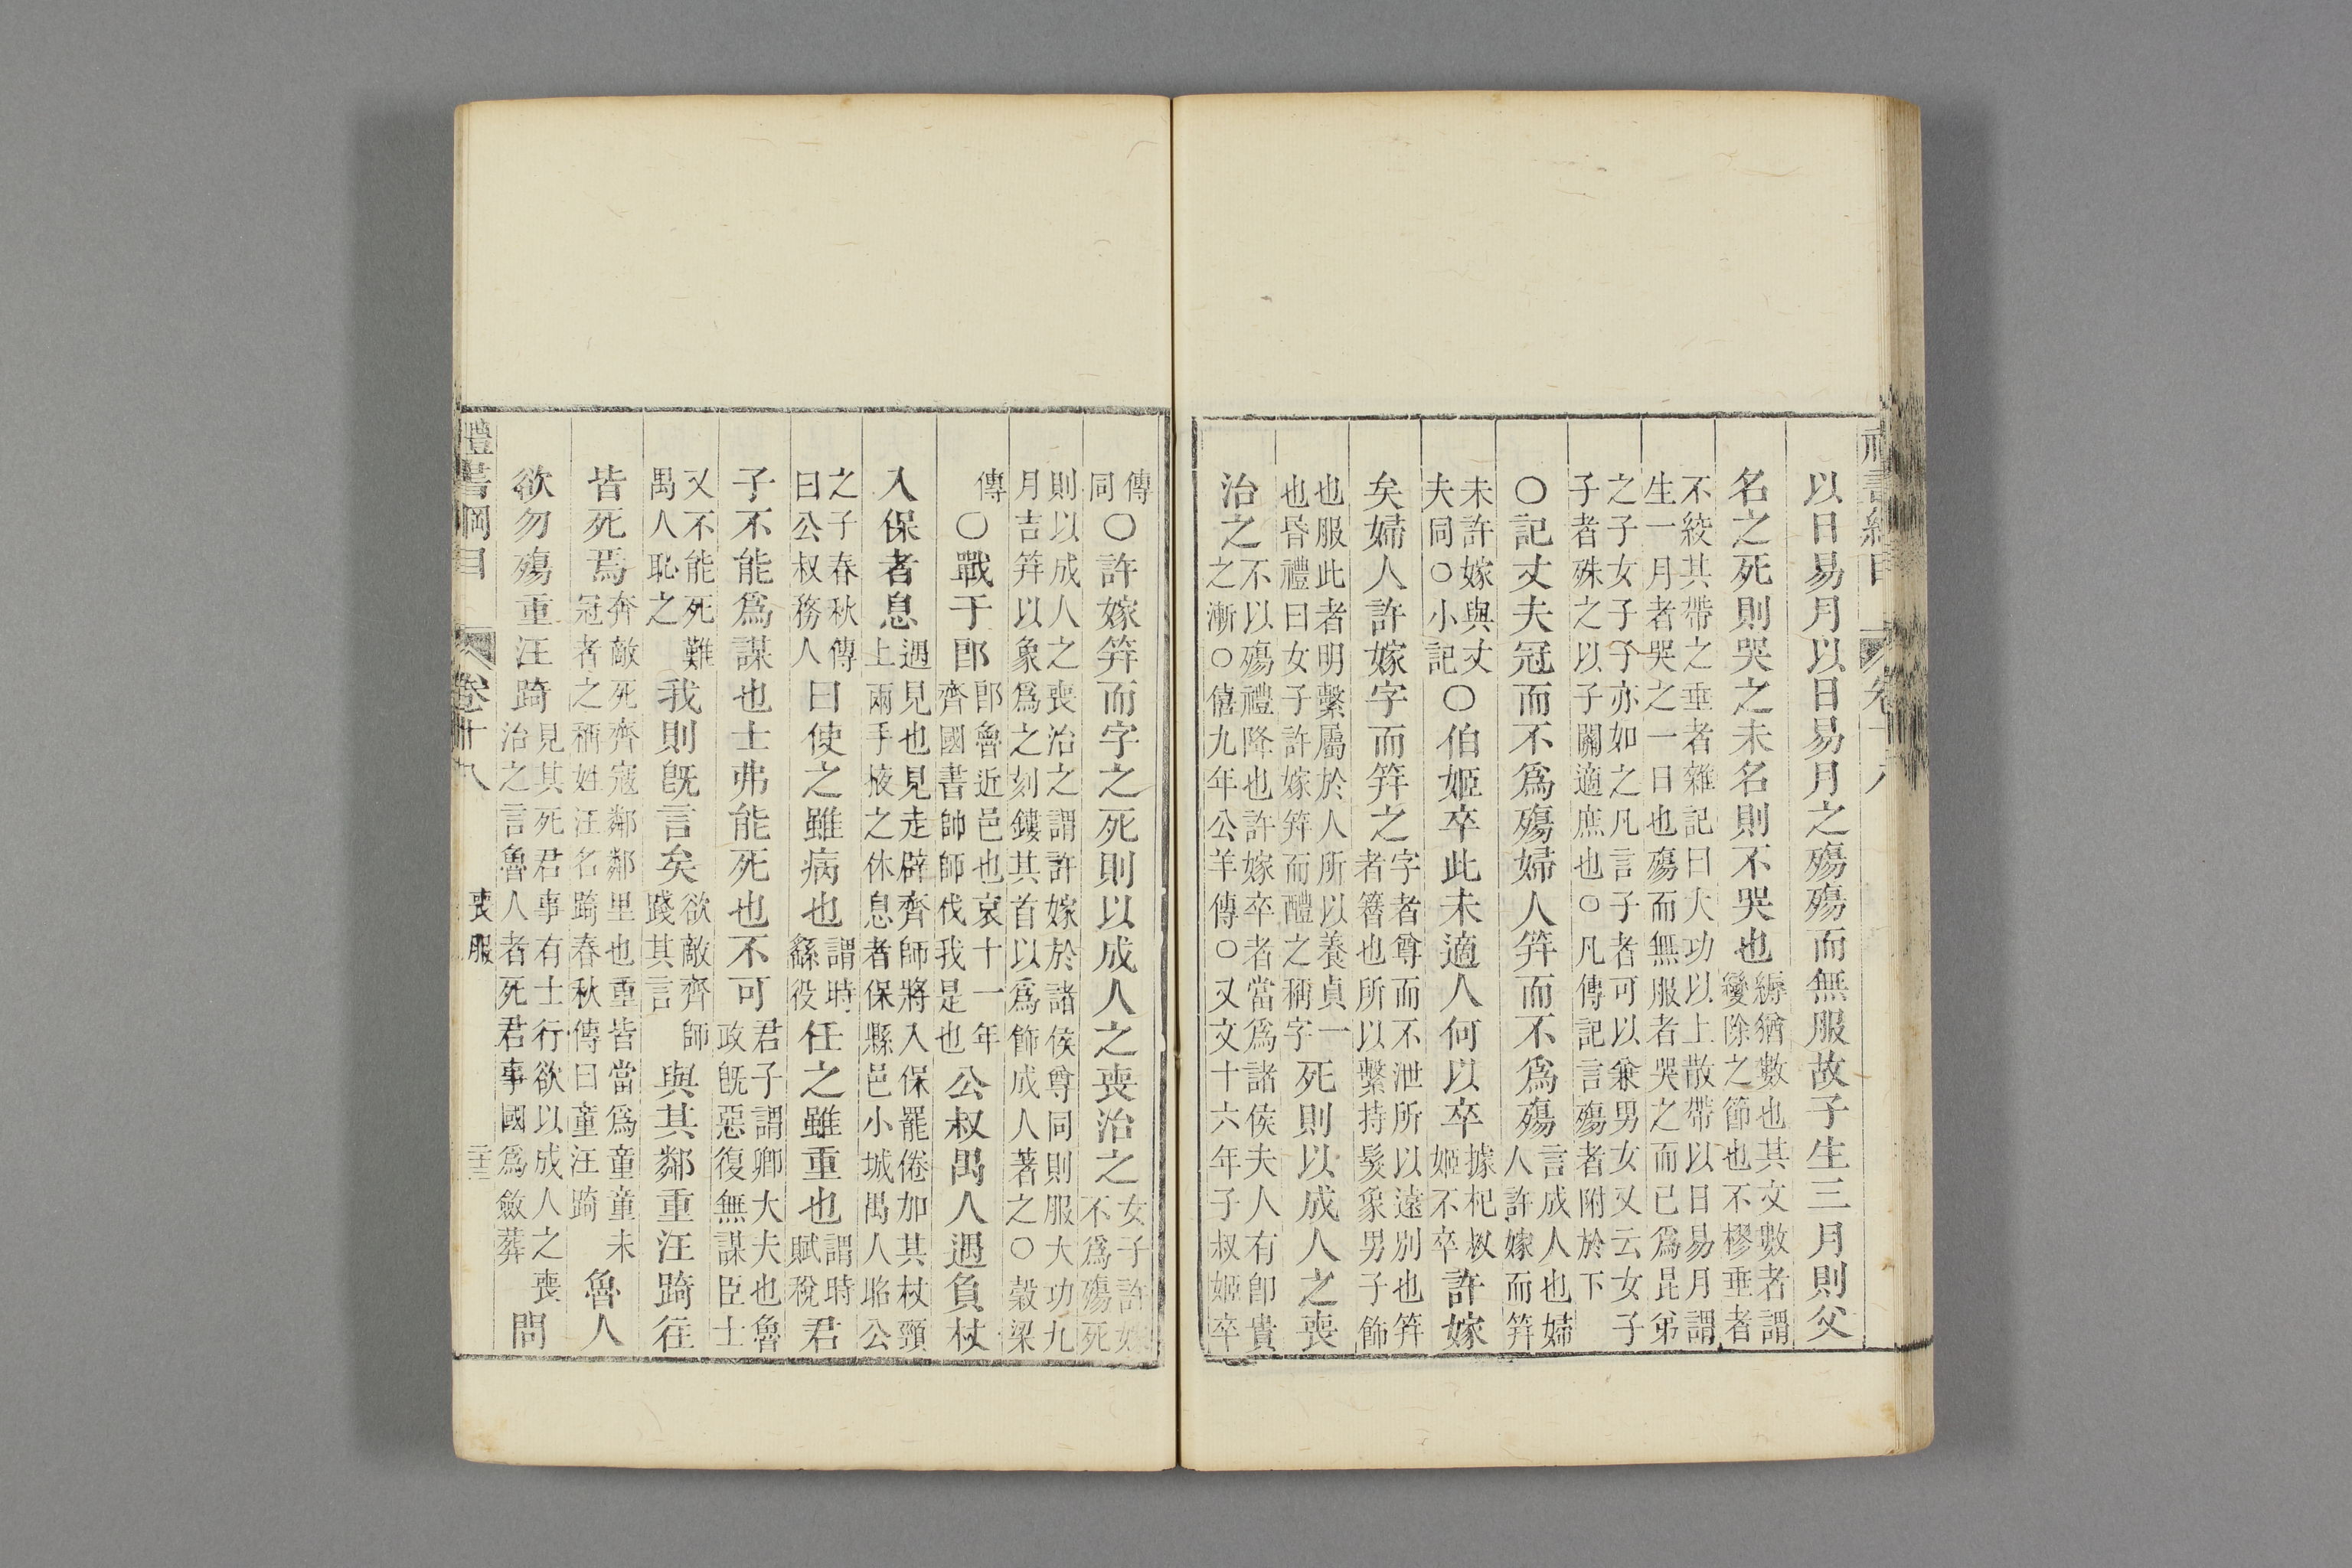 以日易月以日易月之殤殤而無服故子生三月則父
名之死則哭之未名則不哭也縟猶數也其文數者謂變除之節也不樛垂者
不絞其帶之垂者雜記曰大功以上散帶以日易月謂生一月者哭之一日也殤而無服者哭之而已爲昆弟
之子女子子亦如之凡言子者可以兼男女又云女子子者殊之以子關適庶也○凡傳記言殤者附於下
○記丈夫冠而不爲殤婦人笄而不爲殤言成人也婦人許嫁而笄
未許嫁與丈夫同○小記○伯姬卒此未適人何以卒據杞叔姬不卒許嫁
矣婦人許嫁字而笄之字者尊而不泄所以遠別也笄者簪也所以繫持髮象男子飾
也服此者明繫屬於人所以養貞一也昏禮曰女子許嫁笄而醴之稱字死則以成人之喪
治之不以殤禮降也許嫁卒者當爲諸侯夫人有卽貴之漸○僖九年公羊傳○又文十六年子叔姬卒
傳同○許嫁笄而字之死則以成人之喪治之女子許嫁不爲殤死
則以成人之喪治之謂許嫁於諸侯尊同則服大功九月吉笄以象爲之刻鏤其首以爲飾成人著之○穀梁
傳○戰于郎郎魯近邑也哀十一年齊國書帥師伐我是也公叔禺人遇負杖
入保者息遇見也見走辟齊師將入保罷倦加其杖頸上兩手掖之休息者保縣邑小城禺人昭公
之子春秋傳曰公叔務人曰使之雖病也謂時繇役任之雖重也謂時賦稅君
子不能爲謀也士弗能死也不可君子謂卿大夫也魯政旣惡復無謀臣士
又不能死難禺人恥之我則旣言矣欲敵齊師踐其言與其鄰重汪踦往
皆死焉奔敵死齊寇鄰鄰里也重皆當爲童童未冠者之稱姓汪名踦春秋傳曰童汪踦魯人
欲勿殤重汪踦見其死君事有士行欲以成人之喪治之言魯人者死君事國爲斂葬問
禮書綱目 卷廿八 喪服 二十三